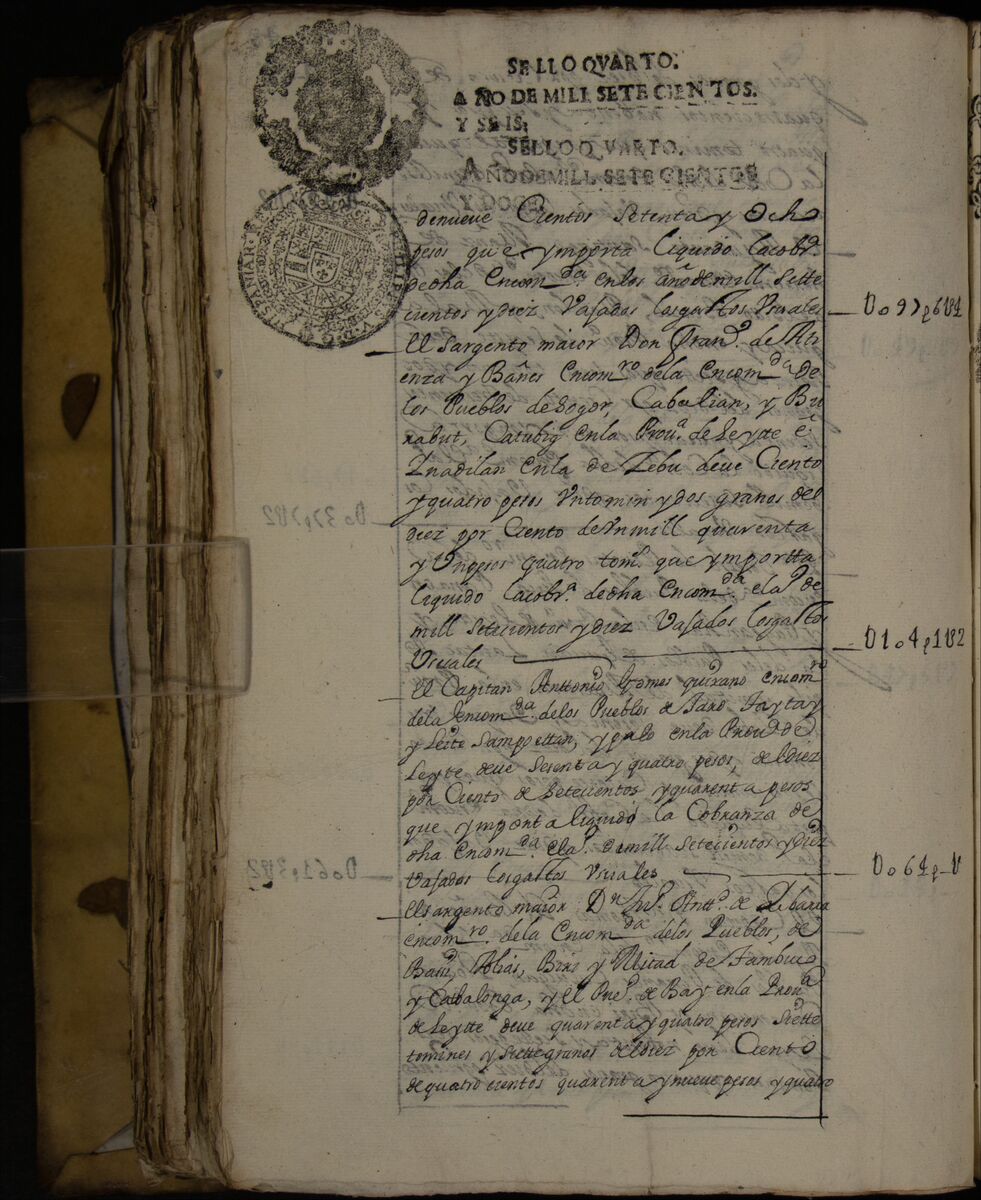 SELLO QVARTO.
AÑO DE MILL SETECIENTOS.
Y SEIS;
SELLO QVARTO.
AÑO DE MILL SETECIENTOS
Y DO
denueve Cientos Setenta y Ocho
pesos que ymporta liquido lacobr.ª
dedha Encom.da enlos añ demill Sette
cientos ydiez Vajados losgastos Vsuales
D097p6U4
El Sargento maior Don Fran.co de Ati
enza y Bañes Encom.ro dela Encom.da de
los Pueblos de Sogor, Cabalian, y Bu
rabut, Catubig enla Prou.ª de Leytte é
Ynadilan enla de Zebu deve Ciento
y quatro pesos Vntomin ydos granos del
diez por Ciento de Vnmill quarenta
y Vnpesos quatro tom.s que ymportta
liquido lacobr.ª dedha Encom.da ela.º de
mill setecientos ydiez Vajados losgastos
Vsuales
D104p1U2
El Capitan Anttonio Gomes quixano encom.ro
dela Encom.da delos Pueblos de Jaro Taytay
y Leite Sampottan, ypalo enla Prou.ª de
Leyte deve Sesenta y quatro pesos, deldiez
por Ciento de Setecientos yquarenta pesos
que ymporta liquido la Cobranza de
dha Encom.da ela.º demill setecientos ydiez
Vajados losgastos Vsuales
D064p-U
Elsargento maior Dn Ju.º Antt.º de
encom.ro dela Encom.da delos Pueblos, de
y Mitad de Tambuco
y Cabalonga, y El Pue.º de Bay enla Prou.ª
deLeytte deve quarenta y quatro pesos Siette
tomines y Siettegranos deldiez por Ciento
dequatrocientos quarenta ynueve pesos yquatro